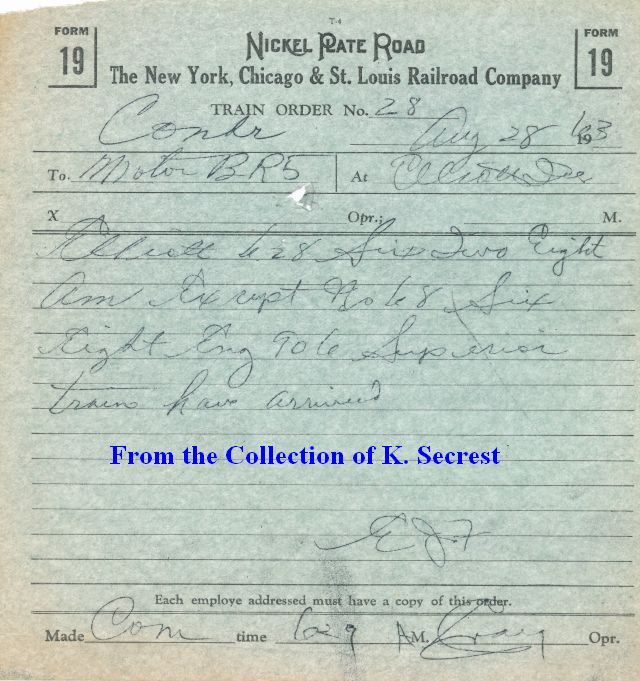 T-4
FORM 19
NICKEL PLATE ROAD
FORM 19
The New York, Chicago & St. Louis Railroad Company
TRAIN ORDER No. 28
Condr Aug 28 1963
To. Motor BR5 At Elliott
X Opr.; M.
Elliott 628 Six Two Eight
Am Except No 68 Six
Eight Eng 906 Superior
trains have arrived
From the Collection of K. Secrest
Each employe addressed must have a copy of this order.
Made Com time 629 AM. Gray Opr.